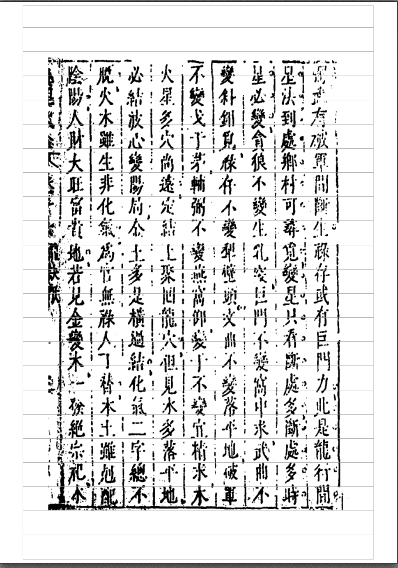 有破軍間斷生祿存或有巨門力此是龍行間
星法到處鄉村可尋覓變星只看斷處多斷處多時
星必變貪狼不變生乳突巨門不變窩中求武曲不
變釵鉗覓祿存不變犁壁頭文曲不變落平地破軍
不變戈丁茅輔弼不變燕窩仰變丁不變宜精求木
火星多穴尚遠定結土聚回龍穴但見水多落平地
必結放心變陽局金土多是橫過結化氣二字總不
脫火木雖生非化氣為官無祿人丁替木土雖尅配
陰陽人財大旺富貴地若見金變木一發絕宗祀水